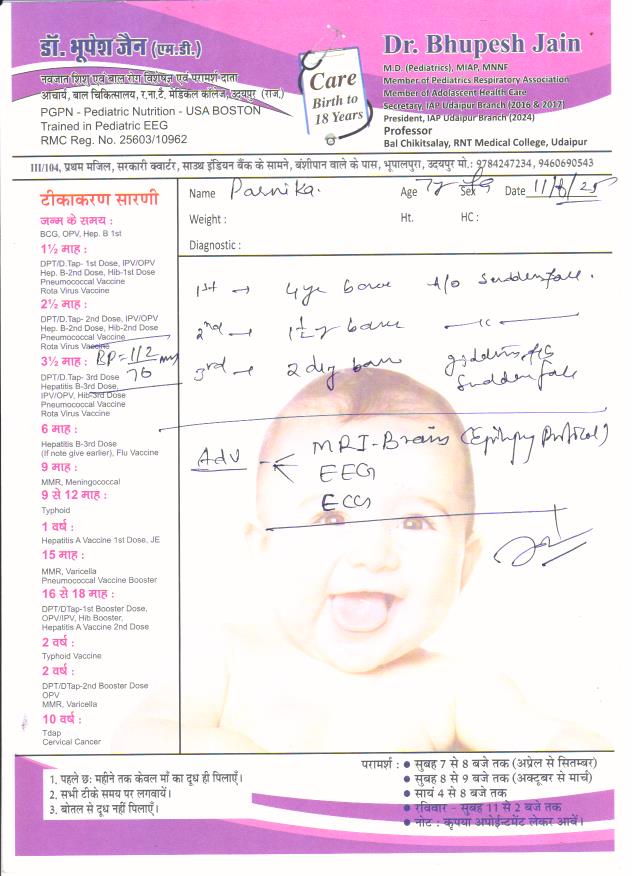 डॉ. भूपेश जैन (एम.डी.)
नवजात शिशु एवं बाल रोग विशेषज्ञ एवं परामर्श दाता
आचार्य, बाल चिकित्सालय, र.ना.टै. मेडिकल कॉलेज, उदयपुर (राज.)
PGPN - Pediatric Nutrition - USA BOSTON
Trained in Pediatric EEG
RMC Reg. No. 25603/10962
Care
Birth to
18 Years
Dr. Bhupesh Jain
M.D. (Pediatrics), MIAP, MNNF
Member of Pediatrics Respiratory Association
Member of Adolascent Health Care
Secretary, IAP Udaipur Branch (2016 & 2017)
President, IAP Udaipur Branch (2024)
Professor
Bal Chikitsalay, RNT Medical College, Udaipur
III/104, प्रथम मजिल, सरकारी क्वार्टर, साउथ इंडियन बैंक के सामने, बंशीपान वाले के पास, भूपालपुरा, उदयपुर मो.: 9784247234, 9460690543
टीकाकरण सारणी
जन्म के समय :
BCG, OPV, Hep. B 1st
1½ माह :
DPT/D.Tap- 1st Dose, IPV/OPV
Hep. B-2nd Dose, Hib-1st Dose
Pneumococcal Vaccine
Rota Virus Vaccine
2½ माह :
DPT/D.Tap- 2nd Dose, IPV/OPV
Hep. B-2nd Dose, Hib-2nd Dose
Pneumococcal Vaccine
Rota Virus Vaccine
3½ माह : BP = 112
76
DPT/D.Tap- 3rd Dose
Hepatitis B-3rd Dose,
IPV/OPV, Hib-3rd Dose
Pneumococcal Vaccine
Rota Virus Vaccine
6 माह :
Hepatitis B-3rd Dose
(If note give earlier), Flu Vaccine
9 माह :
MMR, Meningococcal
9 से 12 माह :
Typhoid
1 वर्ष :
Hepatitis A Vaccine 1st Dose, JE
15 माह :
MMR, Varicella
Pneumococcal Vaccine Booster
16 से 18 माह :
DPT/DTap-1st Booster Dose,
OPV/IPV, Hib Booster,
Hepatitis A Vaccine 2nd Dose
2 वर्ष :
Typhoid Vaccine
2 वर्ष :
DPT/DTap-2nd Booster Dose
OPV
MMR, Varicella
10 वर्ष :
Tdap
Cervical Cancer
Name Parnika. Age 7y Sex Date 11/8/25
Weight : Ht. HC :
Diagnostic :
1st → 4 yr back H/o Sudden fall.
2nd → 1½ y back
3rd → 2 day back giddiness
Sudden fall
Adv MRI-Brain (Epilepsy Protocol)
EEG
ECG
1. पहले छः महीने तक केवल माँ का दूध ही पिलाएँ।
2. सभी टीके समय पर लगवायें।
3. बोतल से दूध नहीं पिलाएँ।
परामर्श : ● सुबह 7 से 8 बजे तक (अप्रेल से सितम्बर)
● सुबह 8 से 9 बजे तक (अक्टूबर से मार्च)
● सायं 4 से 8 बजे तक
● रविवार - सुबह 11 से 2 बजे तक
● नोट : कृपया अपोईन्टमेंट लेकर आवें।